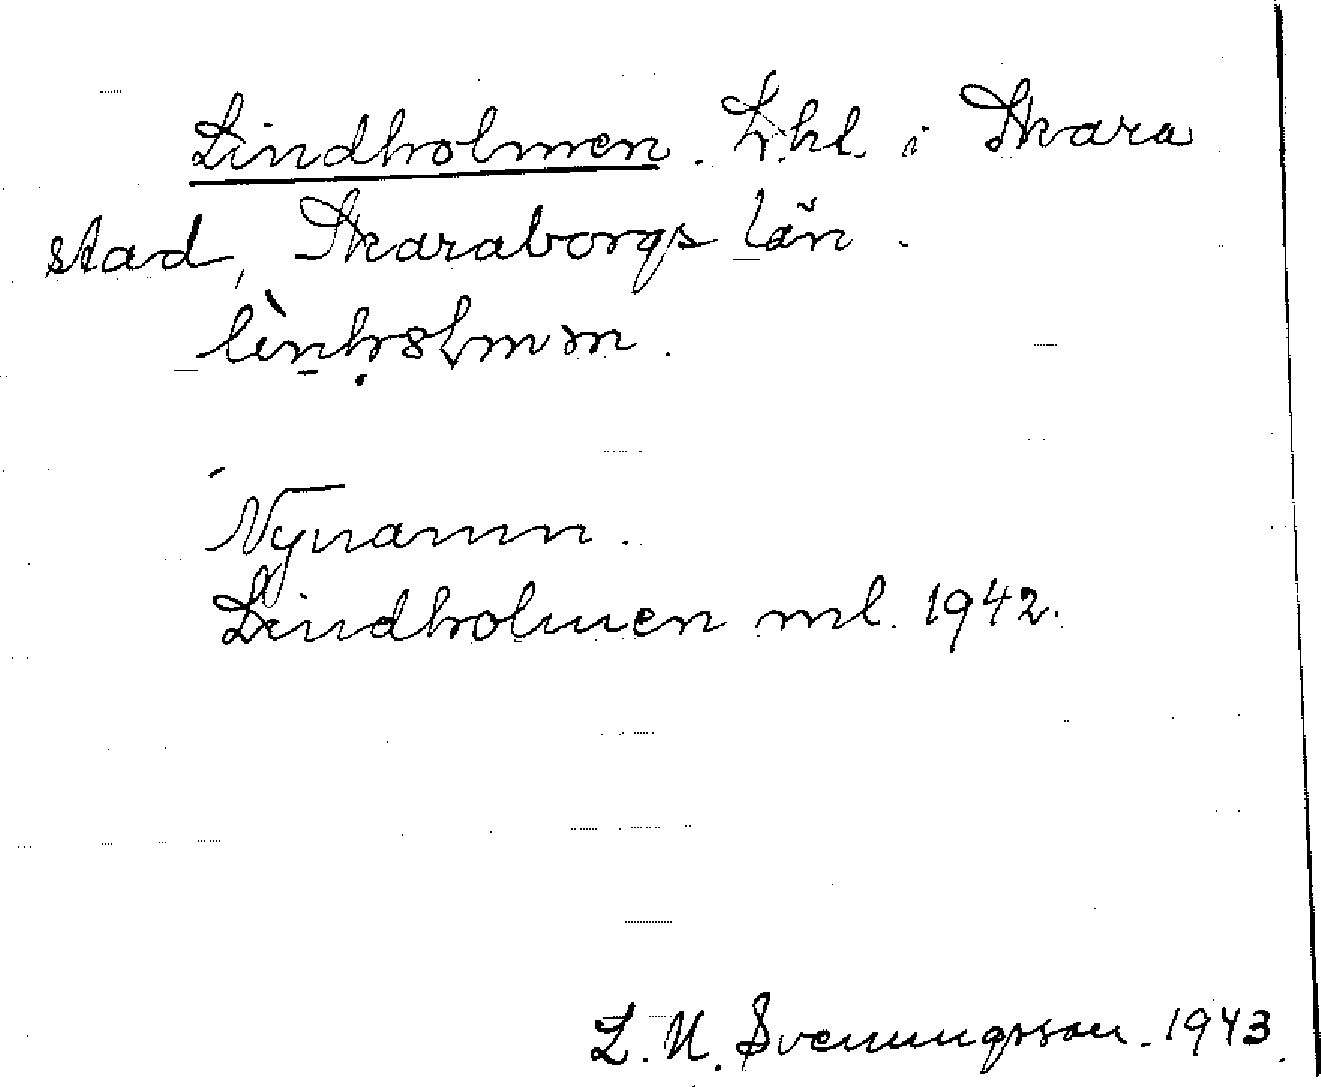 Lindholmen. Lhl. i Skara
stad, Skaraborgs län.
Nynamn.
Lindholmen ml. 1942.
L. N. Svenungsson. 1943.